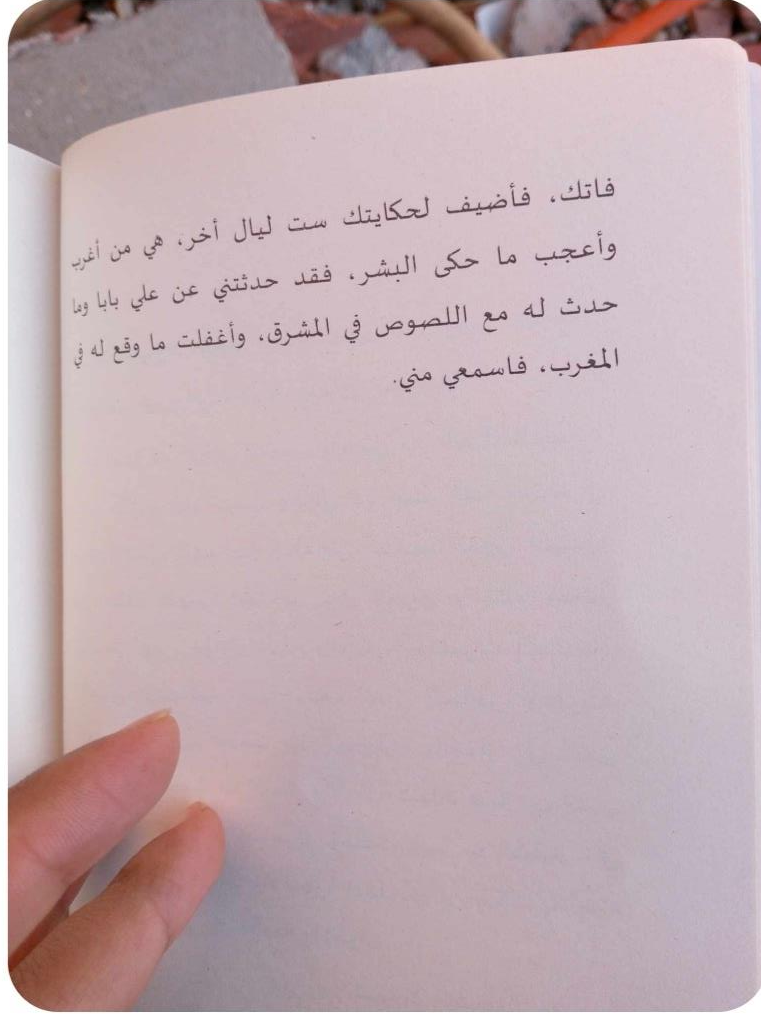 فاتك، فأضيف لحكايتك ست ليال أخر، هي من أغرب
وأعجب ما حكى البشر، فقد حدثتني عن علي بابا وما
حدث له مع اللصوص في المشرق، وأغفلت ما وقع له في
المغرب، فاسمعي مني.